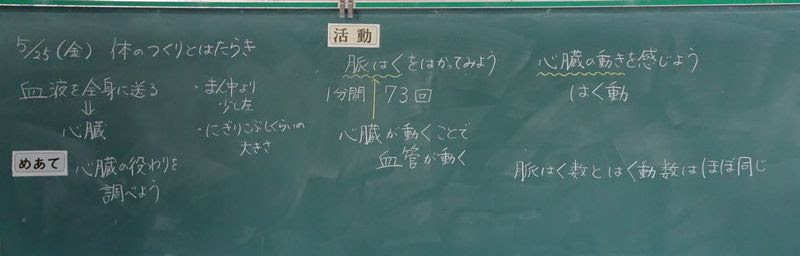 5/25(金) 体のつくりとはたらき
血液を全身に送る
⇓
心臓
・まん中より
少し左
・にぎりこぶしぐらいの
大きさ
めあて
心臓の役わりを
調べよう
活動
脈はくをはかってみよう
1分間 73回
心臓が動くことで
血管が動く
心臓の動きを感じよう
はく動
脈はく数とはく動数はほぼ同じ